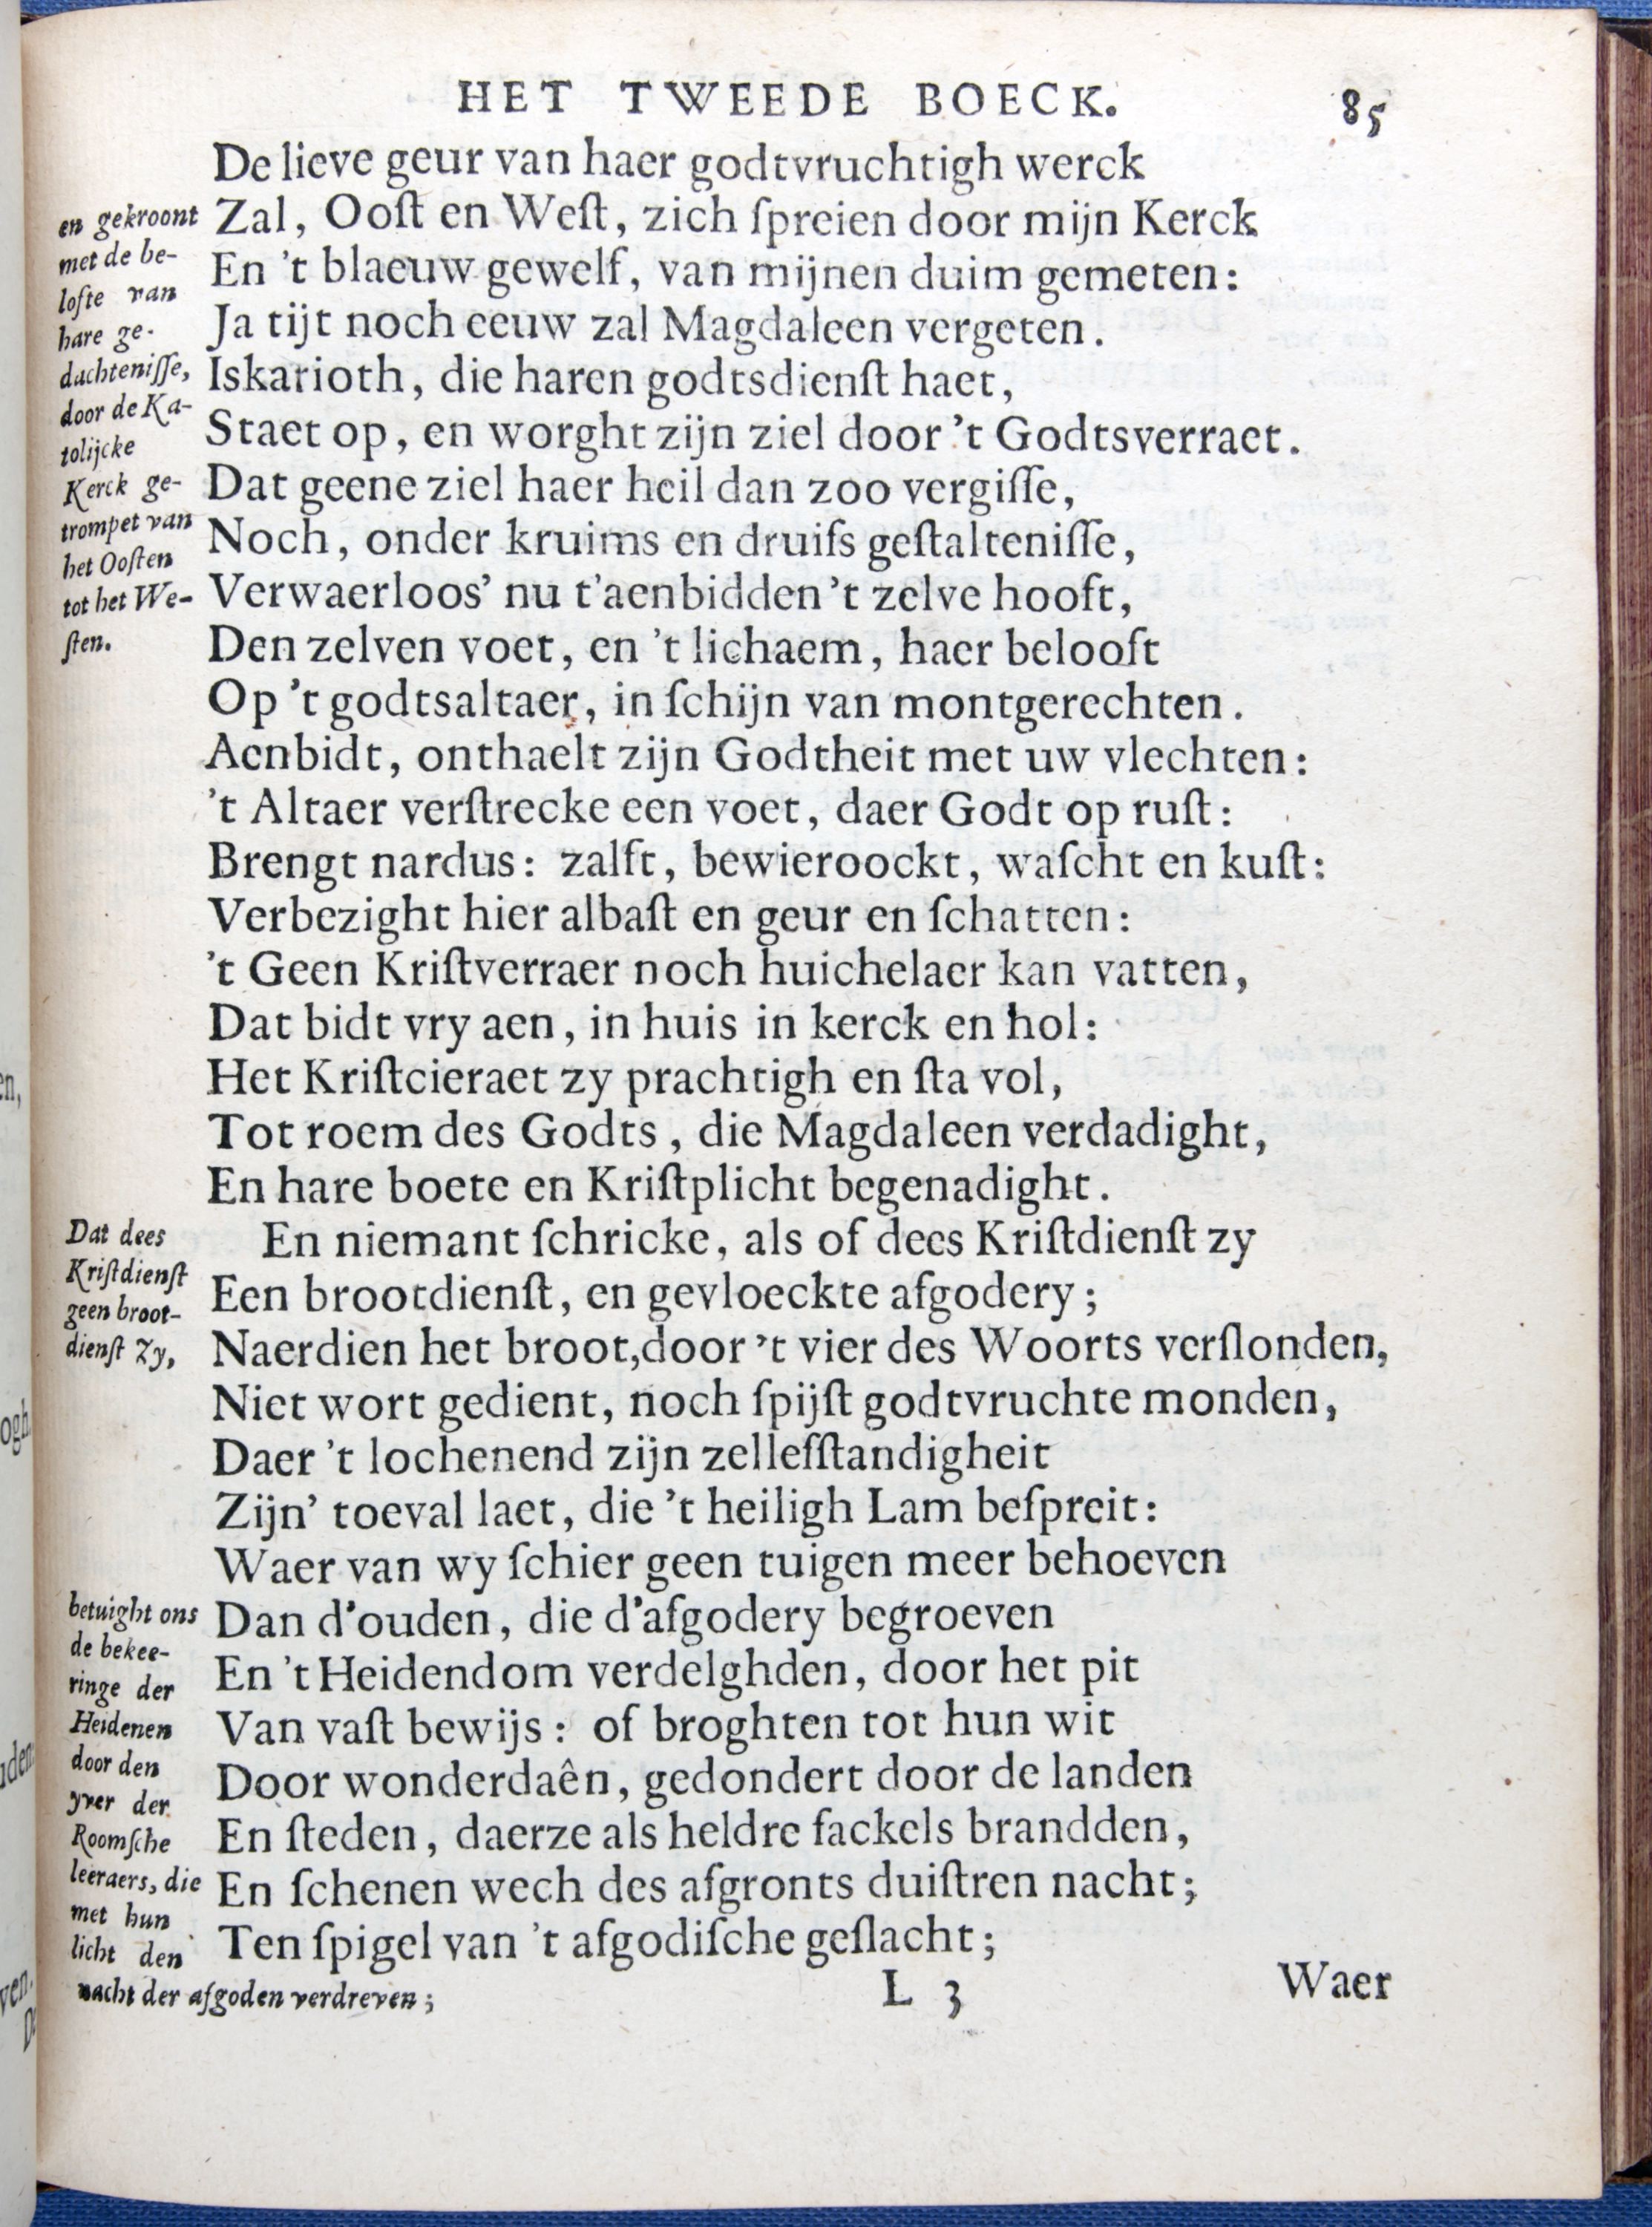 HET TWEEDE BOECK. 85
De lieve geur van haer godtvruchtigh werck
Zal, Ooſt en Weſt, zich ſpreien door mijn Kerck
En 't blaeuw gewelf, van mijnen duim gemeten:
Ja tijt noch eeuw zal Magdaleen vergeten.
Iskarioth, die haren godtsdienſt haet,
Staet op, en worght zijn ziel door 't Godtsverraet.
Dat geene ziel haer heil dan zoo vergiſſe,
Noch, onder kruims en druifs geſtalteniſſe,
Verwaerloos' nu t'aenbidden 't zelve hooft,
Den zelven voet, en 't lichaem, haer belooft
Op 't godtsaltaer, in ſchijn van montgerechten.
Aenbidt, onthaelt zijn Godtheit met uw vlechten:
't Altaer verſtrecke een voet, daer Godt op ruſt:
Brengt nardus: zalft, bewieroockt, waſcht en kuſt:
Verbezight hier albaſt en geur en ſchatten:
't Geen Kriſtverraer noch huichelaer kan vatten,
Dat bidt vry aen, in huis in kerck en hol:
Het Kriſtcieraet zy prachtigh en ſta vol,
Tot roem des Godts, die Magdaleen verdadight,
En hare boete en Kriſtplicht begenadight.
En niemant ſchricke, als of dees Kriſtdienſt zy
Een brootdienſt, en gevloeckte afgodery;
Naerdien het broot, door 't vier des Woorts verſlonden,
Niet wort gedient, noch ſpijſt godtvruchte monden,
Daer 't lochenend zijn zellefſtandigheit
Zijn' toeval laet, die 't heiligh Lam beſpreit:
Waer van wy ſchier geen tuigen meer behoeven
Dan d'ouden, die d'afgodery begroeven
En 't Heidendom verdelghden, door het pit
Van vaſt bewijs: of broghten tot hun wit
Door wonderdaên, gedondert door de landen
En ſteden, daerze als heldre fackels brandden,
En ſchenen wech des afgronts duiſtren nacht;
Ten ſpigel van 't afgodiſche geſlacht;
L 3 Waer
en gekroont
met de be-
lofte van
hare ge-
dachteniſſe,
door de Ka-
tolijcke
Kerck ge-
trompet van
het Ooſten
tot het We-
ſten.
Dat dees
Kriſtdienſt
geen broot-
dienſt zy,
betuight ons
de bekee-
ringe der
Heidenen
door den
yver der
Roomſche
leeraers, die
met hun
licht den
nacht der afgoden verdreven;